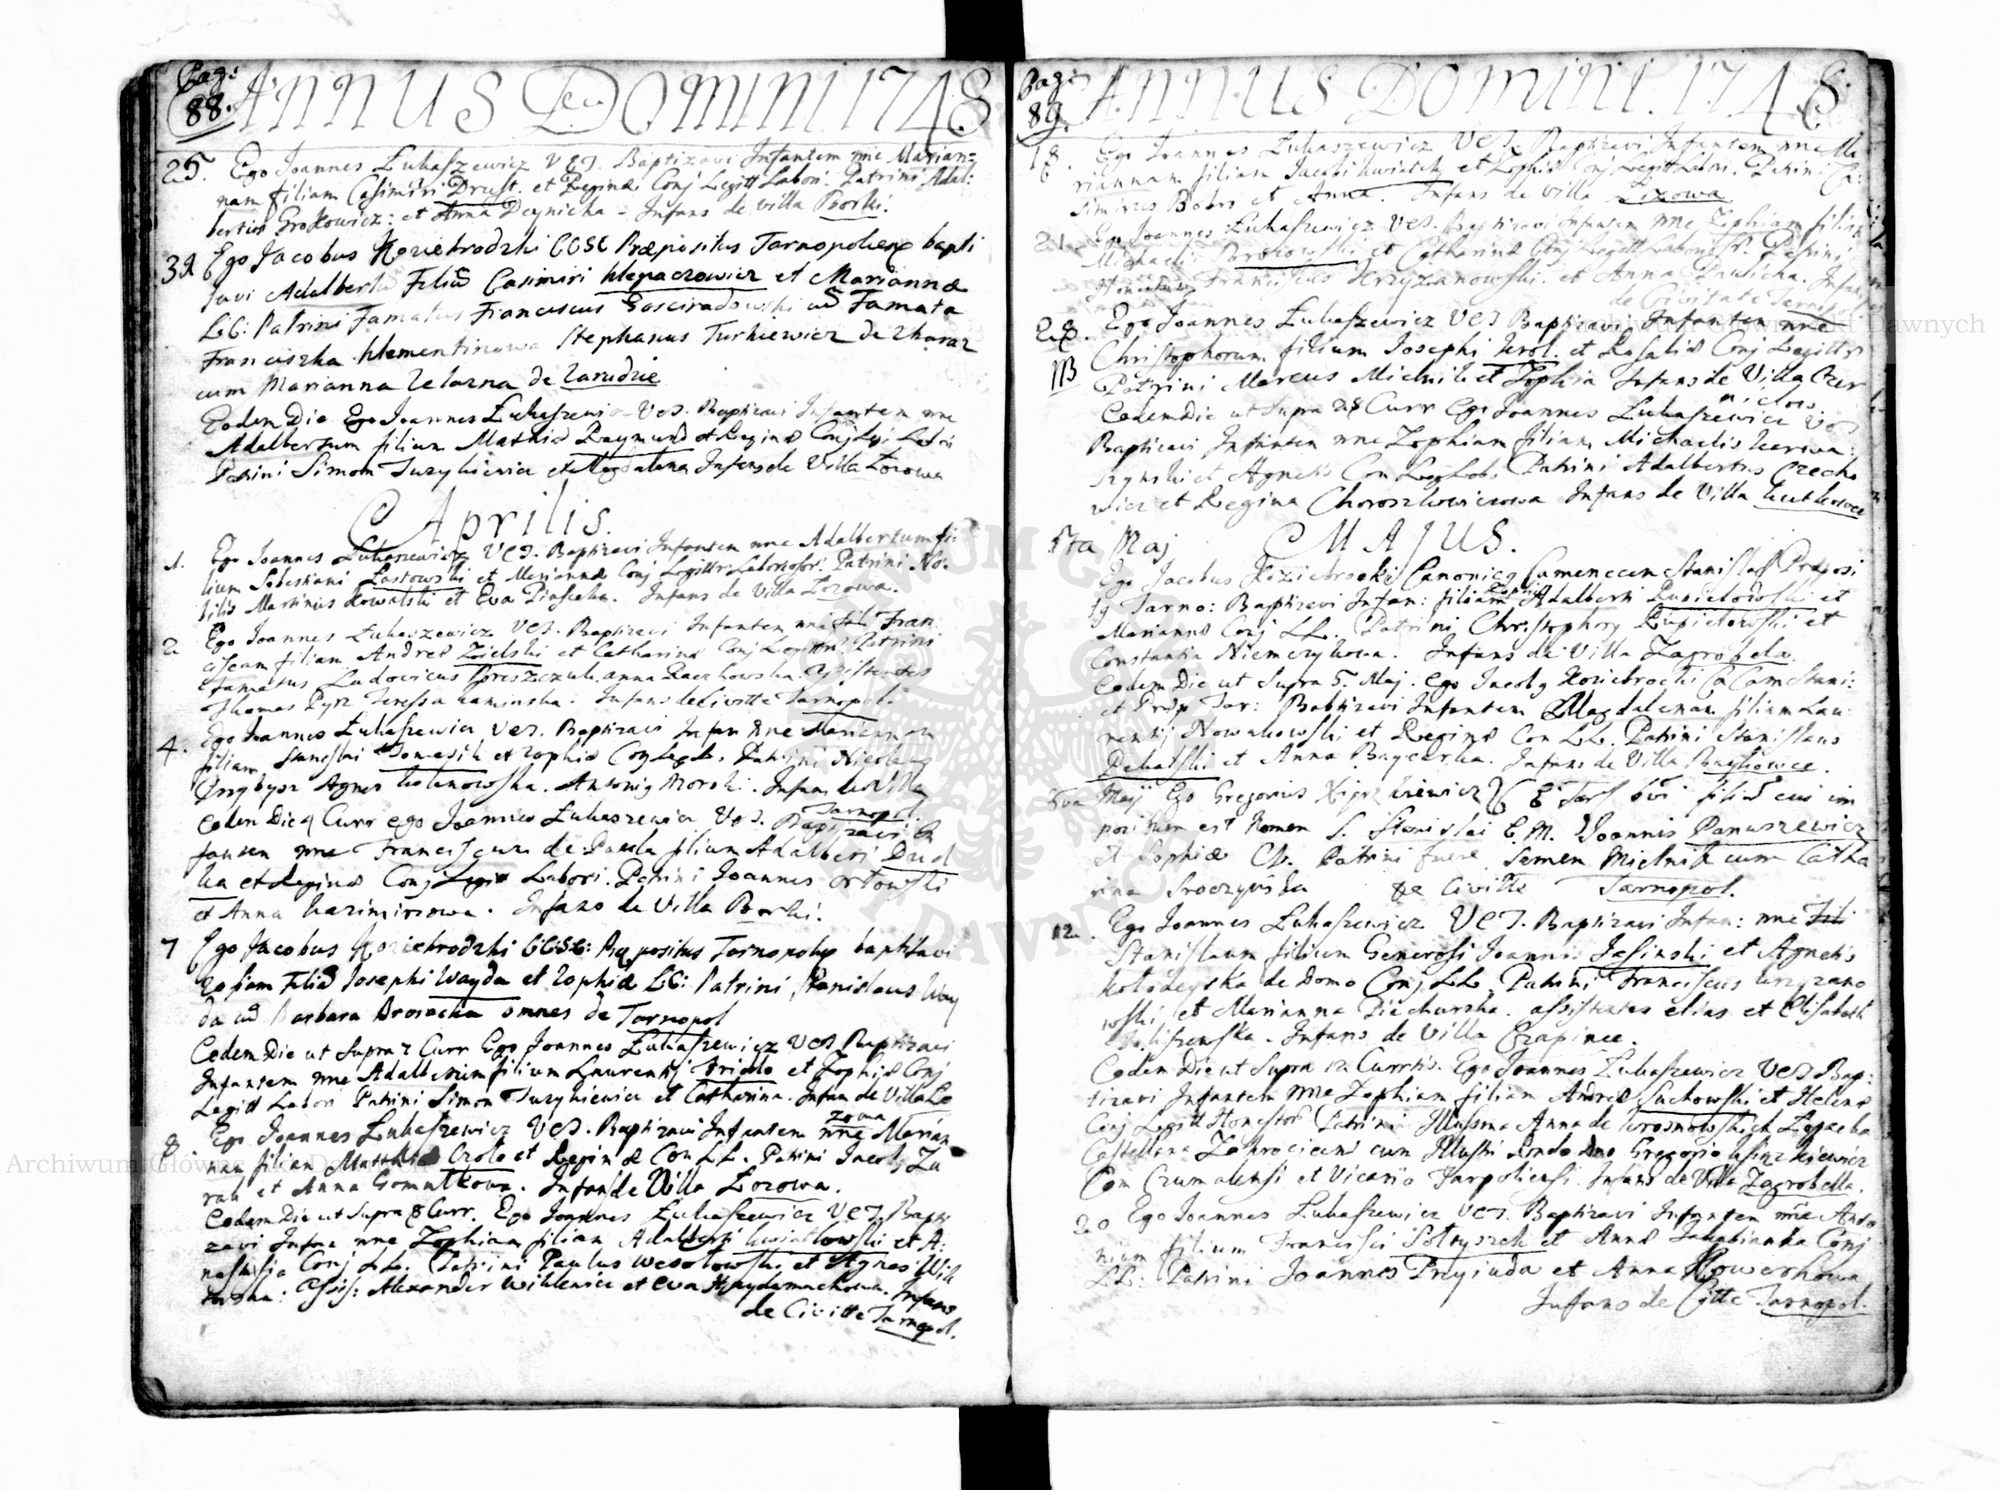 Pag: 88. ANNUS DOMINI 1748
25. Ego Joannes Łukaszewicz VET. Baptizavi Infantem nne Marian=
nam filiam Casimiri Drust. et Reginæ Conj Legitt Labori: Patrini Adal:
bertus et Anna Deynicka - Infans de villa Borki.
31 Ego Jacobus Koziebrodzki CCSC Præpositus Tarnopoliens bapti
savi Adalbertu Filiu Casimiri klepaczowicz et Mariannæ
LC: Patrini Famatus Franciscus Gosciradowski cu Famata
Franciszka klementinowa Stephanus Turkiewicz de zbaraz
cum Marianna Zelazna de Zarudzie
Eodem Die Ego Joannes Łukaszewic VET. Baptizavi Infantem nne
Adalbertum filium Mathiæ Raymund et Reginæ Conj Legi Labri
Patrini Simon Juzykiewicz et Magdalena Infans de Villa Łozowa
Aprilis.
1. Ego Joannes Łukaszewicz VET. Baptizavi Infantem nne Adalbertum fi:
lium Sebestiani Lastowski et Mariannæ Conj Legitt Laboriosor: Patrini No:
bilis Martinus Kowalski et Eva Piasecka. Infans de Villa Łozowa.
2 Ego Joannes Łukaszewicz VET. Baptizavi Infantem nne Fran
ciscam filiam Andreæ Zielski et Catharinæ Conj Legittm: Patrini
famatus Ludovicus anna Raczkowska assistentes
Thomas Pyrz Teressa kaminska. Infans de Civitte Tarnopol.
4. Ego Joannes Łukaszewicz VET. Baptizavi Infan nne Mariannam
filiam Stanislai Tomasik et Zophiæ Conj Leg Lb. Patrini Nicolaus
Przybysz Agnes kolanowska. Antonig Morski. Infans de Villa
Tarnopol.
Eodem Die 4 Curr ego Joannes Łukaszewicz VET. Baptizavi In
fantem nne Franciscum de Paula filium Adalberti Dud
ka et Reginæ Conj Legitt Labori. Patrini Joannes orłowski
et Anna kazimirowa. Infans de Villa Borki.
7 Ego Jacobus Koziebrodzki CCSC: Præpositus Tarnopolien baptisavi
Zofiam Filia Josephi Wayda et Zophiæ LC: Patrini Stanislaus Way
da cu Barbara omnes de Tarnopol
Eodem Die ut Supra 7 Curr Ego Joannes Łukaszewicz VET Baptizavi
Infantem nne Adalbertum filium Laurentij et Zophiæ Conj
Legitt Labori Patrini Simon Juzykiewicz et Catharina. Infan de Villa Ło
zowa
8 Ego Joannes Łukaszewicz VET. Baptizavi Infantem nne Marian
nam filiam Matthiæ et Reginæ Con LL. Patrini Jacobg Zu
rak et Anna. Infans de Villa Łozowa.
Eodem Die ut Supra 8 Curr. Ego Joannes Łukaszewicz VET. Bapti
zavi Infan nne Zophiam filiam Adalberti kwiatkowski et A:
nastasia Conj LL. Patrini Paulus Wesołowski et Agnes
Assis: Alexander Wiklenicz et Eva Haydamachowa. Infans
de Civitte Tarnopol.
Pag: 89. ANNUS DOMINI. 1748.
18 Ego Joannes Łukaszewicz VET. Baptizavi Infantem nne Ma
riannam filiam Jacobi kwiatek et Zophiæ Conj Legitt Labri. Patrini Ca:
simirus Bobro et Anna. Infans de Villa Łozowa
21. Ego Joannes Łukaszewicz VET. Baptizavi Infantem nne Zophiam filiam
Michaelis et Catharinæ Conj Legitt Patrini
Franciscus Krzyzanowski. et Anna Infans
de Civitate Tarnop
28. Ego Joannes Łukaszewicz VET Baptizavi Infantem nne
NB Christophorum filium Josephi krol. et Rosaliæ Conj Legitt
Patrini Marcus Mielnik et Zophia Infans de Villa Czer
nielow.
Eodem Die ut Supra 28 Curr Ego Joannes Łukaszewicz VET
Baptizavi Infantem nne Zophiam filiam Michaelis
et Agnetis Con Leg Lab. Patrini Adalbertus Czecho
wicz et Regina Choroszkowiczowa Infans de Villa kutkowce
5ta Maj MAJUS.
Ego Jacobus Koziebrocki Canonicg Camenecen Stanislass Præposi
tg Tarno: Baptizavi Infan: filiam Adalberti Lupichowski et
Mariannæ Conj LL. Patrini Christophorg Lupichowski et
Constantia Niemczykowa. Infans de Villa Zagrobela.
Eodem Die ut Supra 5. Maj. Ego Jacobg Koziebrocki Ca Cam Stani:
et Præp Tar: Baptizavi Infantem Magdalenam filiam Lau:
rentij Nowakowski et Reginæ Con LL. Patrini Stanislaus
Dekalski et Anna Bayczerka. Infans de Villa Baykowce.
6ta Maij Ego Gregorius filiu cui im
positum est Nomen S. Stanislai E. M. Joannis Januszewicz
et Sophiæ Patrini fuere Semen Mielnik cum Catha
rina Sroczynska de Civitte Tarnopol.
12. Ego Joannes Łukaszewicz VET. Baptizavi Infan: nne
Stanislaum filium Generosi Joannis Jasinski et Agnetis
kołodeyska de Domo Conj LL. Patrini Franciscus krzyzano
wski et Marianna Piechurska. assistentes Elias et Elisabeth
Infans de Villa Czapince.
Eodem Die ut Supra 12 Currtis. Ego Joannes Łukaszewicz VET Bap:
tizavi Infantem nne Zophiam filiam Andreæ Suchowski et Helenæ
Conj Legitt Honestor Patrini Illussma Anna de krosnowskich
Castellana Zakrocimens cum Illustri Rndo Dno Gregorio
Com Czumalensi et Vicario Tarpoliensi. Infans de Villa Zagrobella.
20 Ego Joannes Łukaszewicz VET. Baptizavi Infantem nne Anto
nium filium Francisci Sołtyszek et Annæ Jakubianka Conj
LL: Patrini Joannes Przyiuda et Anna Kowerkowa
Infans de Citte Tarnopol.